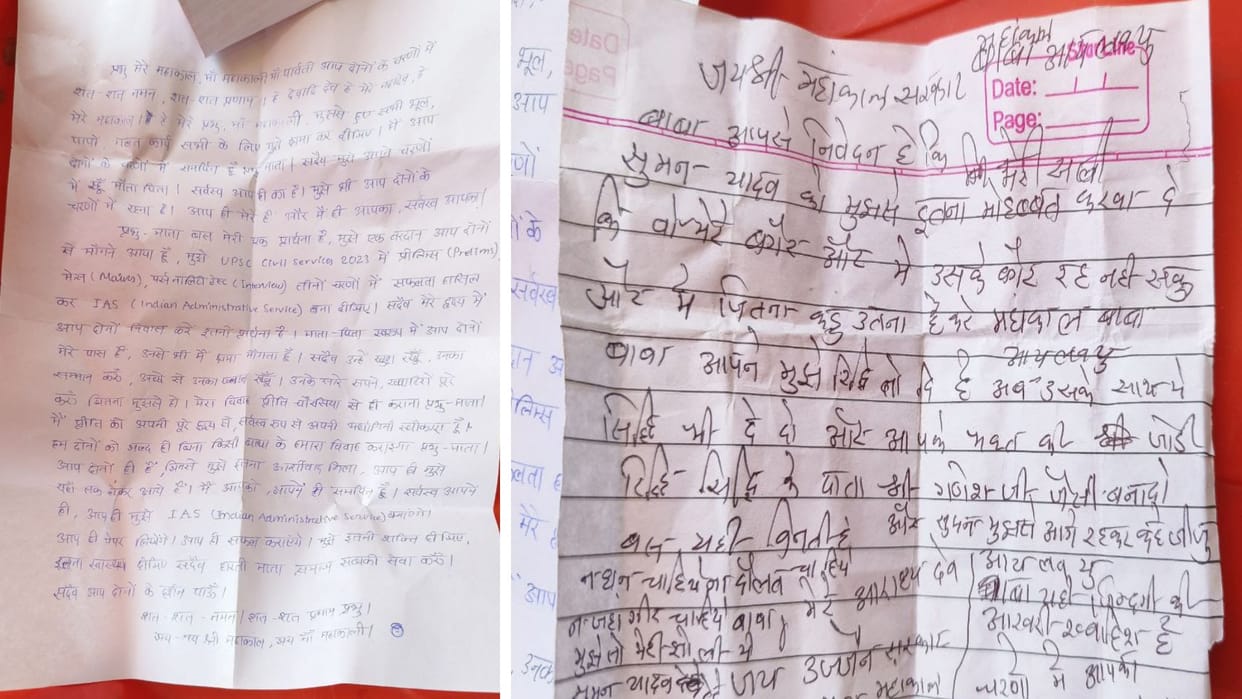 प्रभु मेरे महाकाल, माँ महाकाली माँ पार्वती आप दोनों के चरणों में
शत-शत नमन, शत-शत प्रणाम। हे देवादि देव हे मेरे महादेव, हे
मेरे महाकाल। हे मेरे प्रभु, माँ महाकाली, मुझसे हुए सभी भूल,
पापों, गलत कार्य सभी के लिए मुझे क्षमा कर दीजिए। मैं आप
दोनों के चरणों में समर्पित हूँ प्रभु माता। सदैव मुझे अपने चरणों
में रखूँ, माता पिता। सर्वस्व आप ही का है। मुझे भी आप दोनों के
चरणों में रहना है। आप ही मेरे हैं और मैं ही आपका, सर्वस्व आपका।
प्रभु-माता बस मेरी एक प्रार्थना है, मुझे एक वरदान आप दोनों
से माँगने आया हूँ, मुझे UPSC Civil Services 2023 में प्रीलिम्स (Prelims),
मेंस (Mains), पर्सनालिटी टेस्ट (Interview) तीनों चरणों में सफलता हासिल
कर IAS (Indian Administrative Service) बना दीजिए। सदैव मेरे हृदय में
आप दोनों निवास करें इतनी प्रार्थना है। माता-पिता स्वरूप में आप दोनों
मेरे पास हैं, उनसे भी मैं क्षमा माँगता हूँ। सदैव उन्हें खुश रखूँ, उनका
सम्मान करूँ, अच्छे से उनका ध्यान रखूँ। उनके सारे सपने, ख्वाहिशें पूरे
करूँ जितना मुझसे हो। मेरा विवाह प्रीति चौरसिया से ही कराना प्रभु-माता।
मैं प्रीति को अपनी पूरे हृदय से, सर्वस्व रूप से अपनी स्वीकारा हूँ।
हम दोनों को जल्द ही बिना किसी बाधा के हमारा विवाह कराइएगा प्रभु-माता।
आप दोनों ही हैं, जिनसे मुझे इतना आशीर्वाद मिला, आप ही मुझे
यहाँ तक लेकर आये हैं। मैं आपको, आपमें ही समर्पित हूँ। सर्वस्व आपने
ही, आप ही मुझे IAS (Indian Administrative Service) बनाएंगे।
आप ही पेपर लिखेंगे। आप ही सफल कराएंगे। मुझे इतनी शक्ति दीजिए,
इतना स्वास्थ्य दीजिए सदैव धरती माता समाज सबकी सेवा करूँ।
सदैव आप दोनों के लीन पाऊँ।
शत-शत-नमन। शत-शत प्रणाम प्रभु।
जय-जय श्री महाकाल, जय माँ महाकाली।
महाकाल
बाबा आय लव यु
जय श्री महाकाल सरकार
Date:
Page:
बाबा आपसे निवेदन है कि
कि मेरी
सुमन यादव को मुझसे इतना मोहब्बत करवा दे
कि वो मेरे बगैर और मे उसके बगैर रह नही सकु
और मे जितना कहु उतना हे करे महाकाल बाबा
आय लव यु
बाबा आपने मुझे रिद्धि तो दि है अब उसके साथ ये
सिद्धि भी दे दो और आपके भक्त की जोडी
रिद्धि सिद्धि के दाता श्री गणेश जी जैसी बनादो
बस यही विनती है और सुमन मुझसे आगे रहकर कहे जीजु
आय लव यु
न धन चाहिये ना दौलत चाहिये
न जहागीर चाहिये बाबा, मेरे आराध्य देव
बाबा यही जिन्दगी की
आखरी ख्वाहिश है
मुझे तो मेरी झोली मे
सुमन यादव देदो जय उज्जैन सरकार
महाकाल
चरणो मे आपको
भूल,
आप
णों
के
सर्वस्व
मेरे
आप
उनका